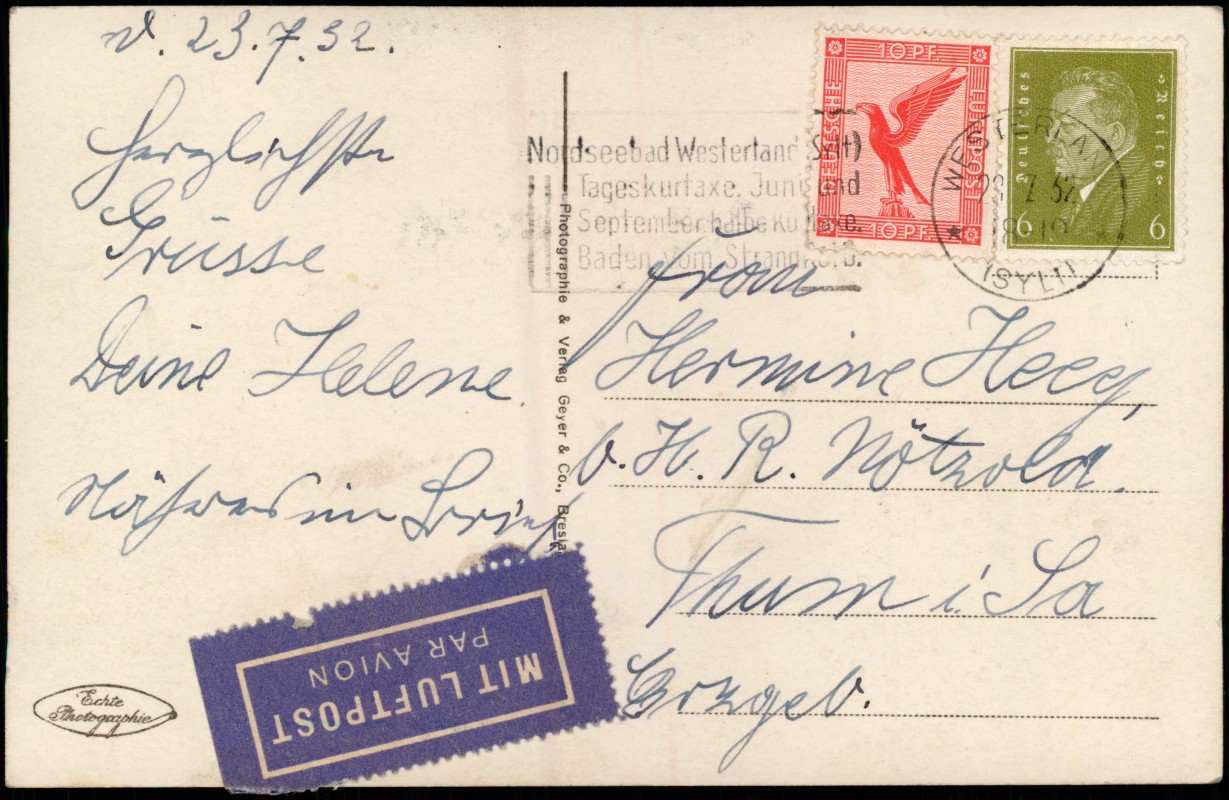 d. 23.7.32.
Herzlichste
Grüsse
Deine Helene.
Näheres im Brief
Echte
Photographie
MIT LUFTPOST
PAR AVION
Photographie & Verlag Geyer & Co., Bresla
Nordseebad Westerland Sylt)
Tageskurtaxe. Juni und
September halbe Ku axe.
Baden vom Strandkorb.
10 PF.
DEUTSCHE
LUFTPOST
10 PF.
Deutsches
Reich
6 6
WESTERLAN
23. 7. 32
18-19
(SYLT)
Frau
Hermine Heeg,
b. H. R. Nötzold.
Thum i. Sa
Erzgeb.